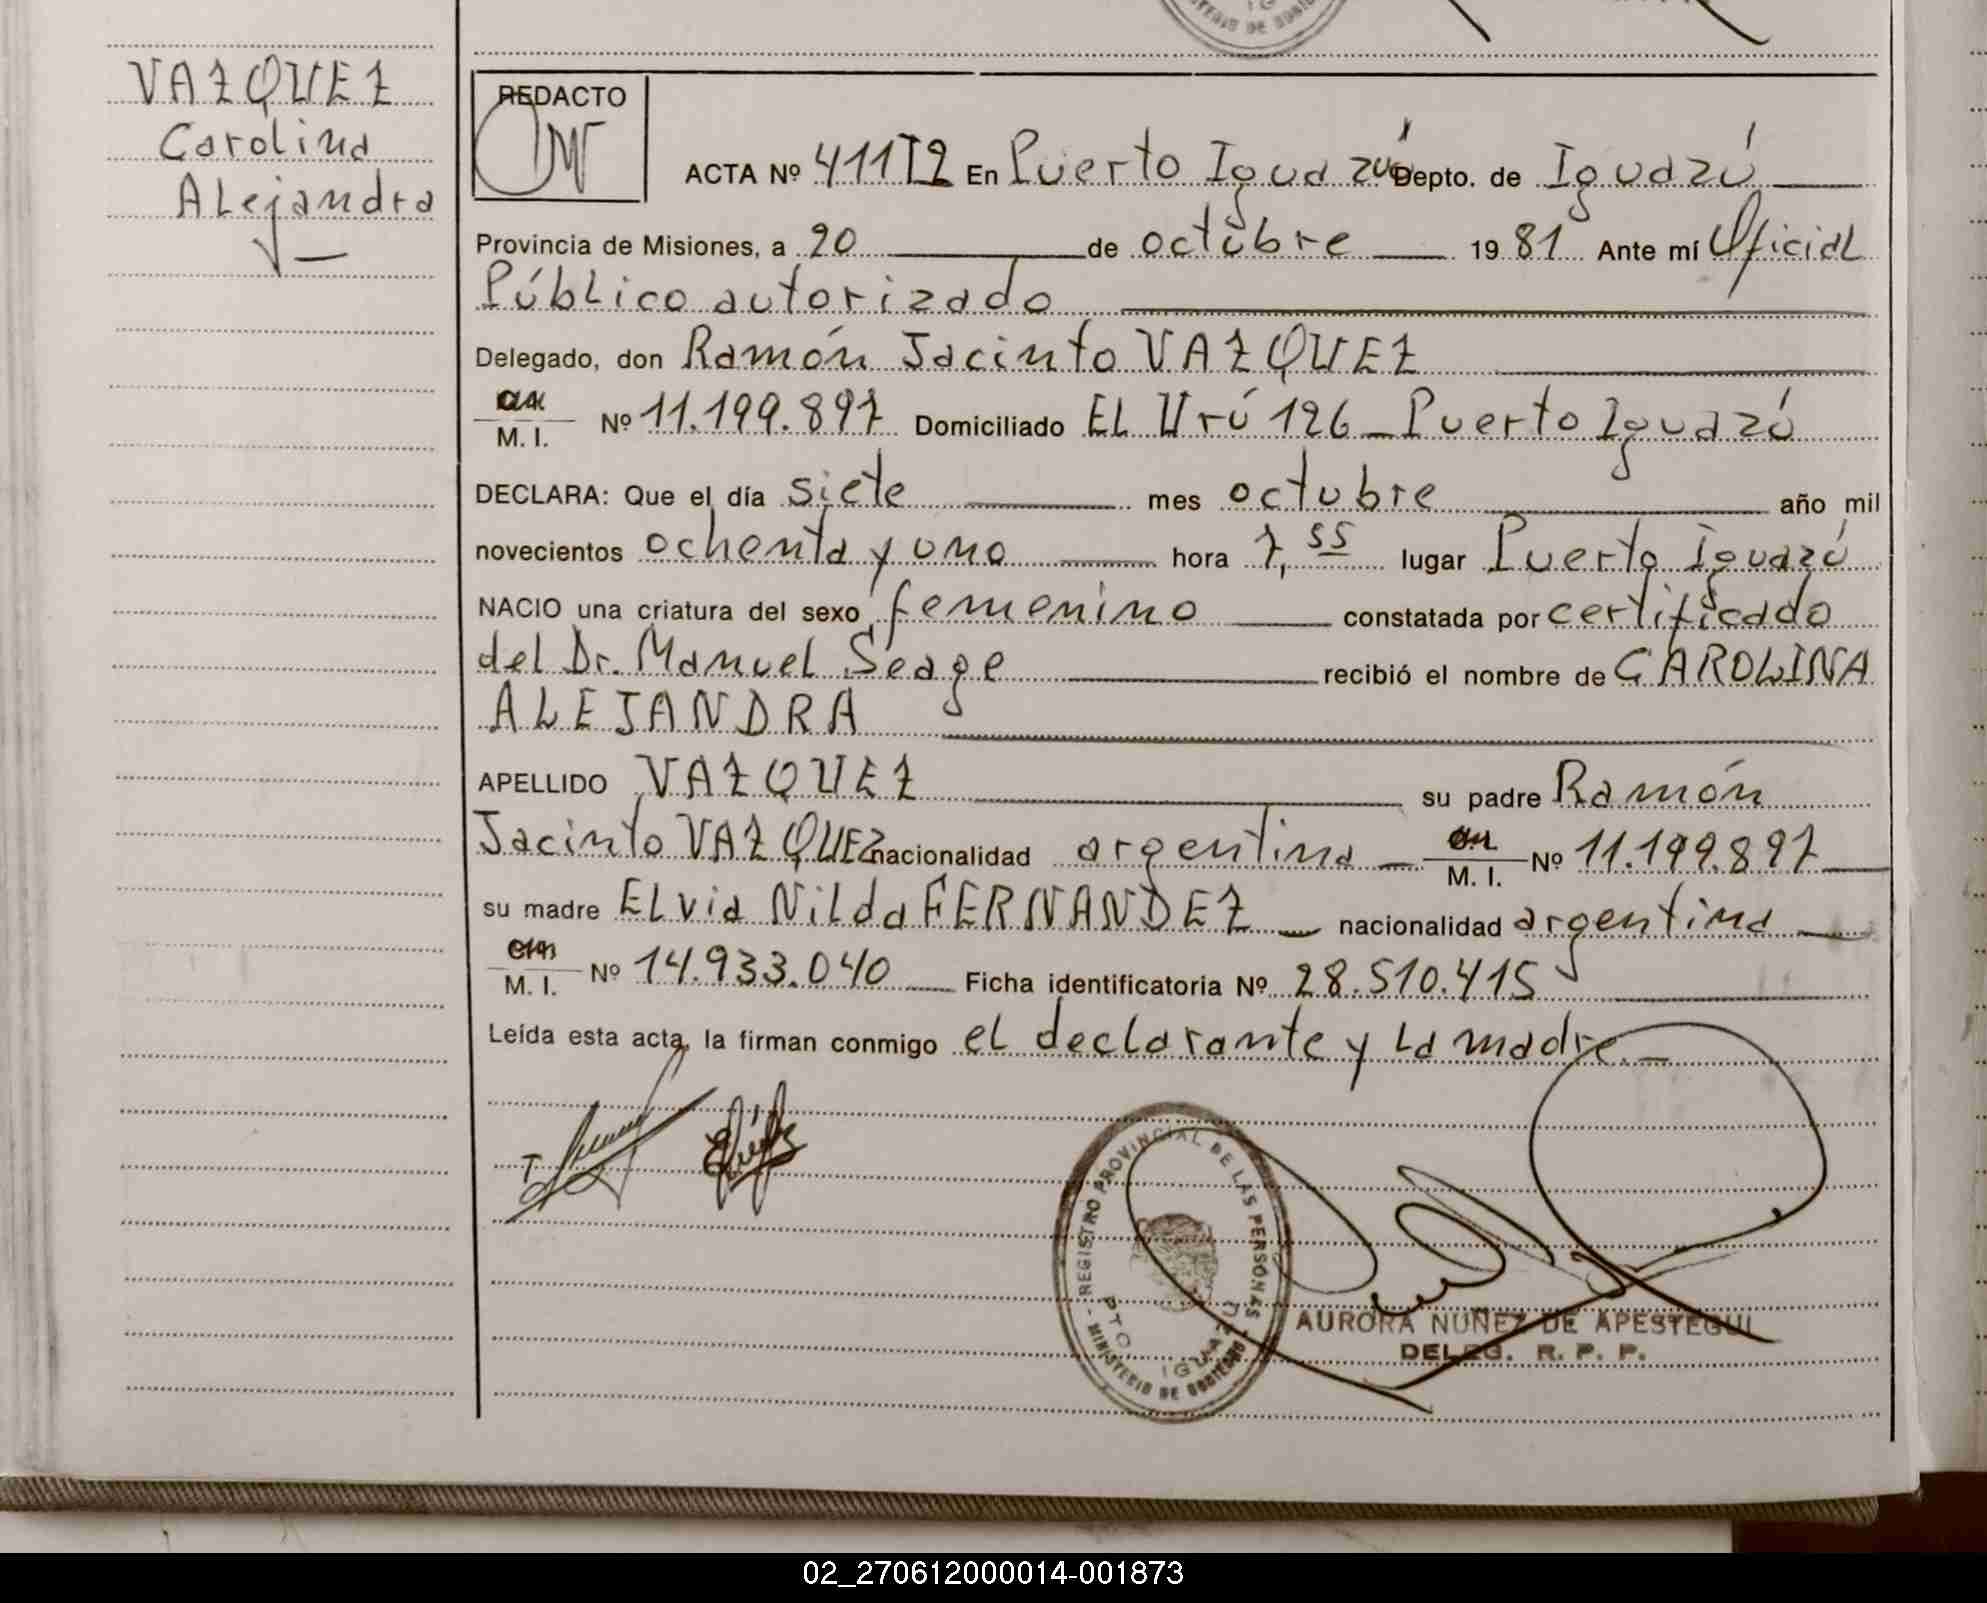 VAZQUEZ
Carolina
Alejandra
REDACTO
ACTA Nº 411T2 En Puerto Iguazú Depto. de Iguazú
Provincia de Misiones, a 20 de octubre 1981 Ante mí Oficial
Público autorizado
Delegado, don Ramón Jacinto VAZQUEZ
M. I. Nº 11.199.897 Domiciliado El Urú 126 - Puerto Iguazú
DECLARA: Que el día siete mes octubre año mil
novecientos ochenta y uno hora 7,55 lugar Puerto Iguazú
NACIO una criatura del sexo femenino constatada por certificado
del Dr. Manuel Seage recibió el nombre de CAROLINA
ALEJANDRA
APELLIDO VAZQUEZ su padre Ramón
Jacinto VAZQUEZ nacionalidad argentina M. I. Nº 11.199.897
su madre Elvia Nilda FERNANDEZ nacionalidad argentina
M. I. Nº 14.933.040 Ficha identificatoria Nº 28.510.415
Leída esta acta, la firman conmigo el declarante y la madre.
REGISTRO PROVINCIAL DE LAS PERSONAS
PTO. IGUAZU
MINISTERIO DE GOBIERNO
AURORA NUÑEZ DE APESTEGUI
DELEG. R. P. P.
02_270612000014-001873